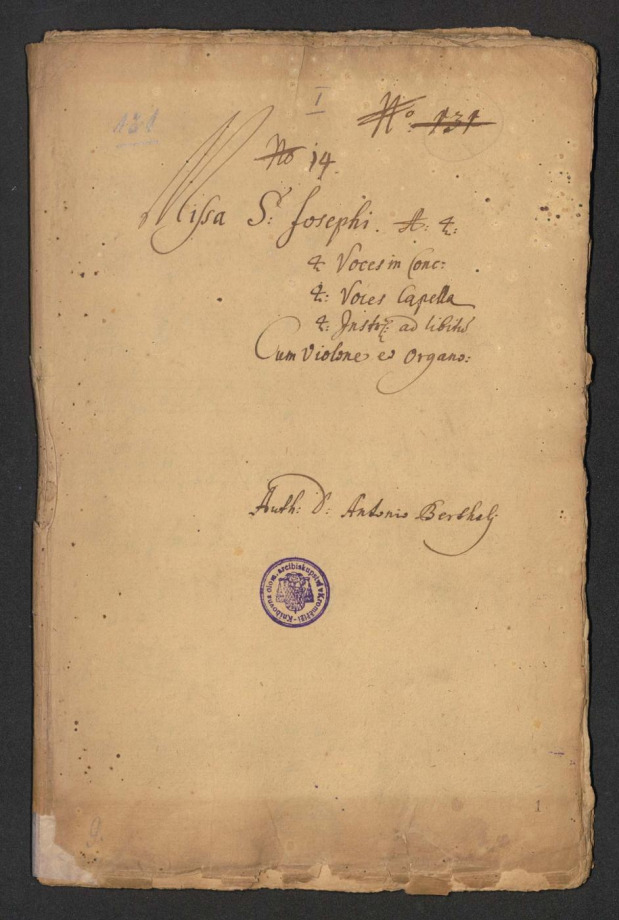 I
131
No 131
No 14
Missa S: Josephi. A: 4:
4 Voces in Conc:
4: Voces Capella
4: Instr: ad libitũ
Cum Violone et Organo:
Auth: D: Antonio Berthali
Knihovna olom. arcibiskupství v Kroměříži
1
9